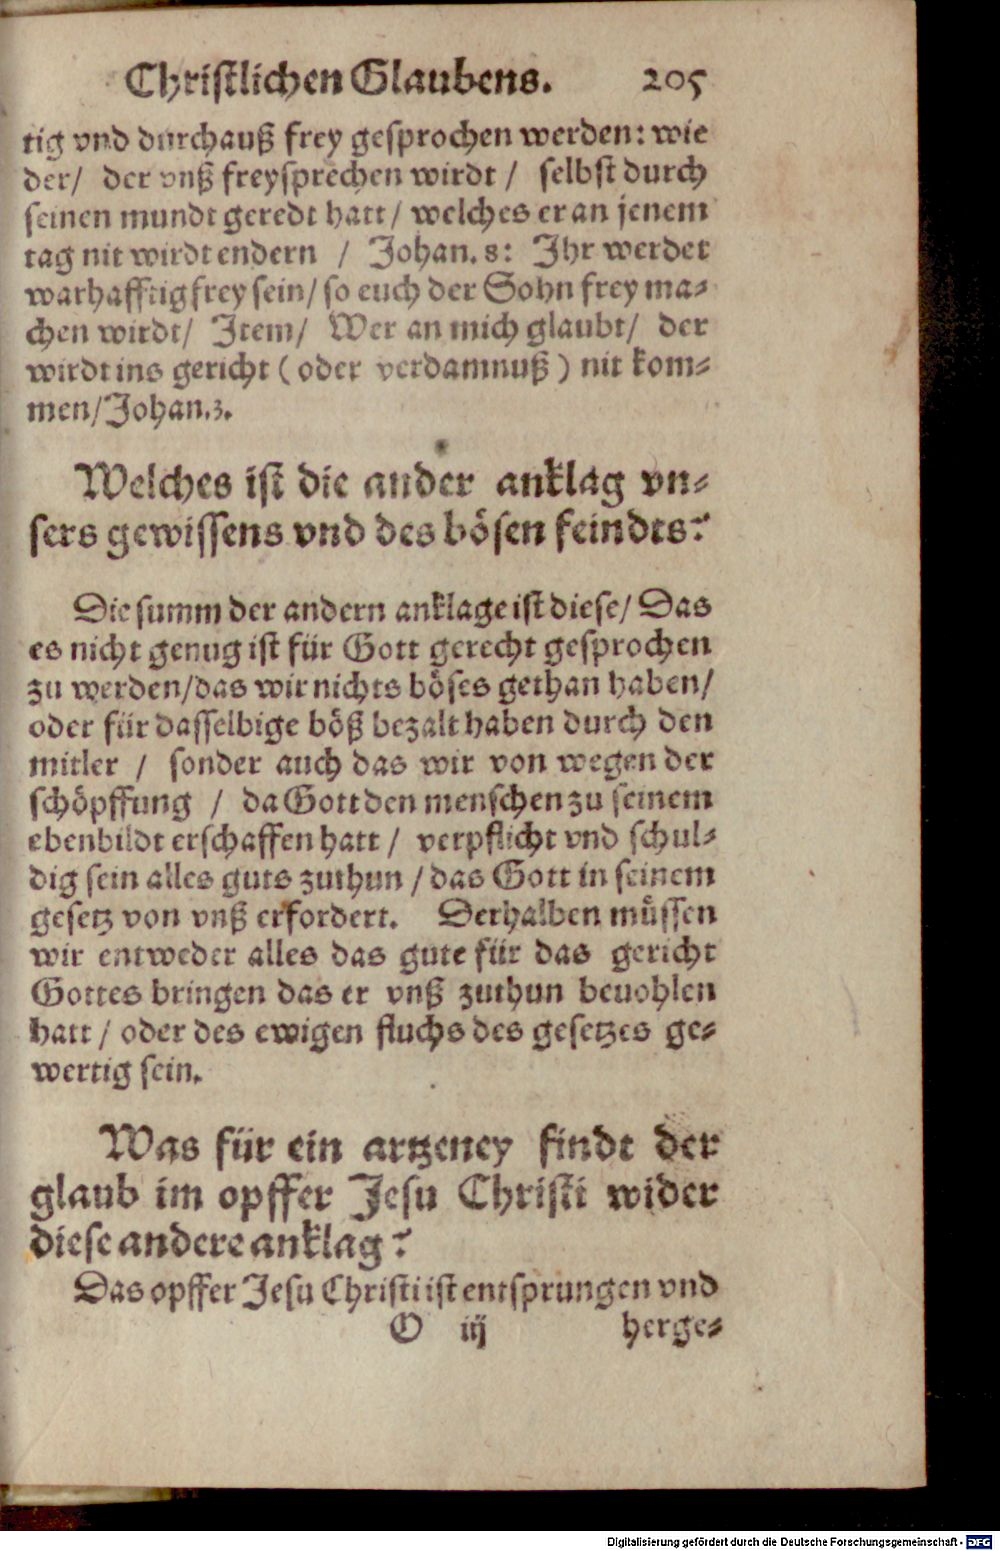 Christlichen Glaubens. 205
tig vnd durchauß frey gesprochen werden: wie
der/ der vnß freysprechen wirdt / selbst durch
seinen mundt geredt hatt/ welches er an jenem
tag nit wirdt endern / Johan. 8: Ihr werdet
warhafftig frey sein/ so euch der Sohn frey ma⸗
chen wirdt/ Item/ Wer an mich glaubt/ der
wirdt ins gericht (oder verdamnuß) nit kom⸗
men/Johan.3.
Welches ist die ander anklag vn⸗
sers gewissens vnd des bösen feindts?
Die summ der andern anklage ist diese/ Das
es nicht genug ist für Gott gerecht gesprochen
zu werden/das wir nichts böses gethan haben/
oder für dasselbige böß bezalt haben durch den
mitler / sonder auch das wir von wegen der
schöpffung / da Gott den menschen zu seinem
ebenbildt erschaffen hatt/ verpflicht vnd schul⸗
dig sein alles guts zuthun /das Gott in seinem
gesetz von vnß erfordert. Derhalben müssen
wir entweder alles das gute für das gericht
Gottes bringen das er vnß zuthun beuohlen
hatt / oder des ewigen fluchs des gesetzes ge⸗
wertig sein.
Was für ein artzeney findt der
glaub im opffer Jesu Christi wider
diese andere anklag?
Das opffer Jesu Christi ist entsprungen vnd
O iij herge⸗
Digitalisierung gefördert durch die Deutsche Forschungsgemeinschaft - DFG